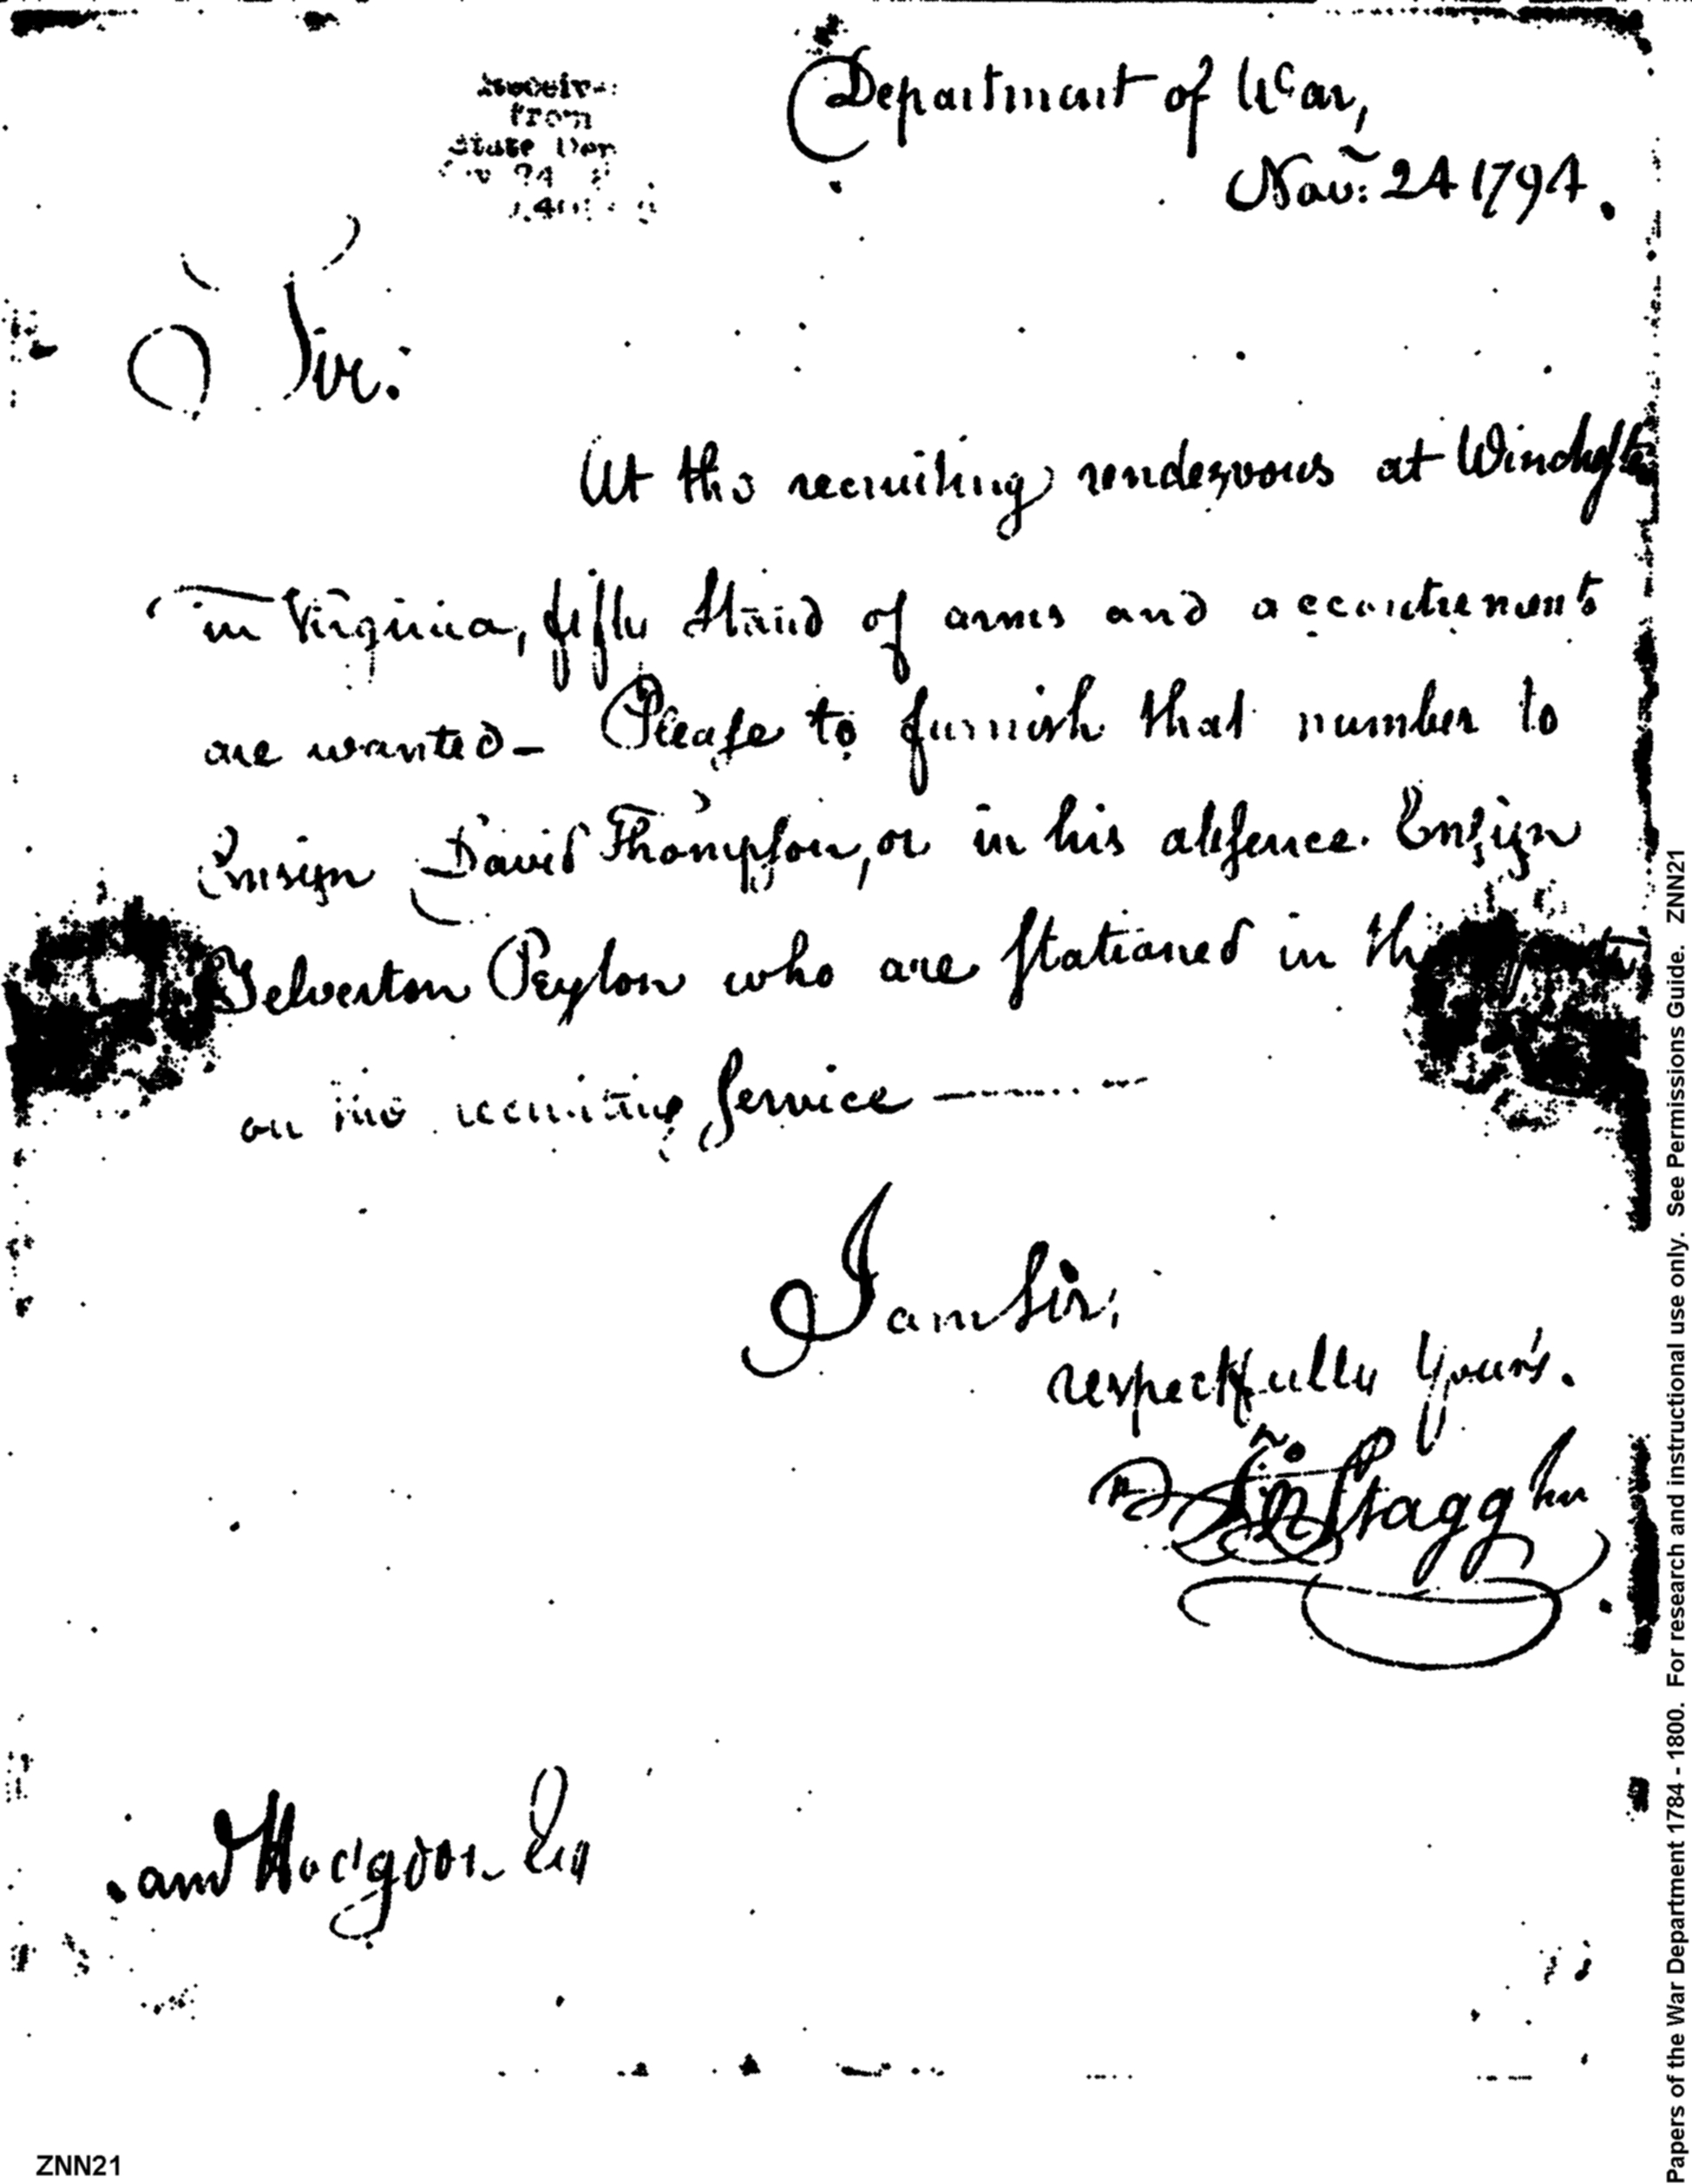 Department of War,
Nov: 24 1794.
from
State Dep
Sir:
At the recruiting rendezvous at Winchester
in Virginia, fifty stand of arms and accoutrements
are wanted - Please to furnish that number to
Ensign David Thompson, or in his absence. Ensign
Yelverton Peyton who are stationed in
on the recruiting service
I am Sir,
respectfully Yours.
Jno Stagg Jun
Sam Hodgdon Esq
ZNN21
Papers of the War Department 1784 - 1800. For research and instructional use only. See Permissions Guide. ZNN21